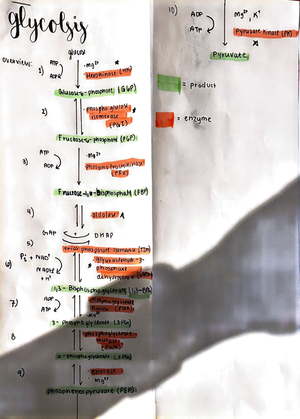 glycolysis
overview:
glucose
1)
ATP
ADP
Mg²⁺
Hexokinase (HK)
Glucose-6-phosphate (G6P)
2)
phospho glucose
isomerase
(PGI)
Fructose-6-phosphate (F6P)
3)
ATP
ADP
Mg²⁺
phosphofructokinase
(PFK)
Fructose-1,6-Bisphosphate (FBP)
4)
aldolase
GAP
DHAP
5)
triose phosphate isomerase (TIM)
6)
Pi + NAD⁺
NADH
+ H⁺
glyceraldehyde-3-
phosphate
1,3-Bisphosphoglycerate (1,3-BPG)
7)
ADP
ATP
Mg²⁺
3-phosphoglycerate (3PG)
8
phosphoglycerate
mutase
2-phosphoglycerate (2PG)
9)
enolase
Mg²⁺
phosphoenolpyruvate (PEP)
10)
ADP
ATP
Mg²⁺, K⁺
Pyruvate kinase (PK)
Pyruvate
= product
= enzyme